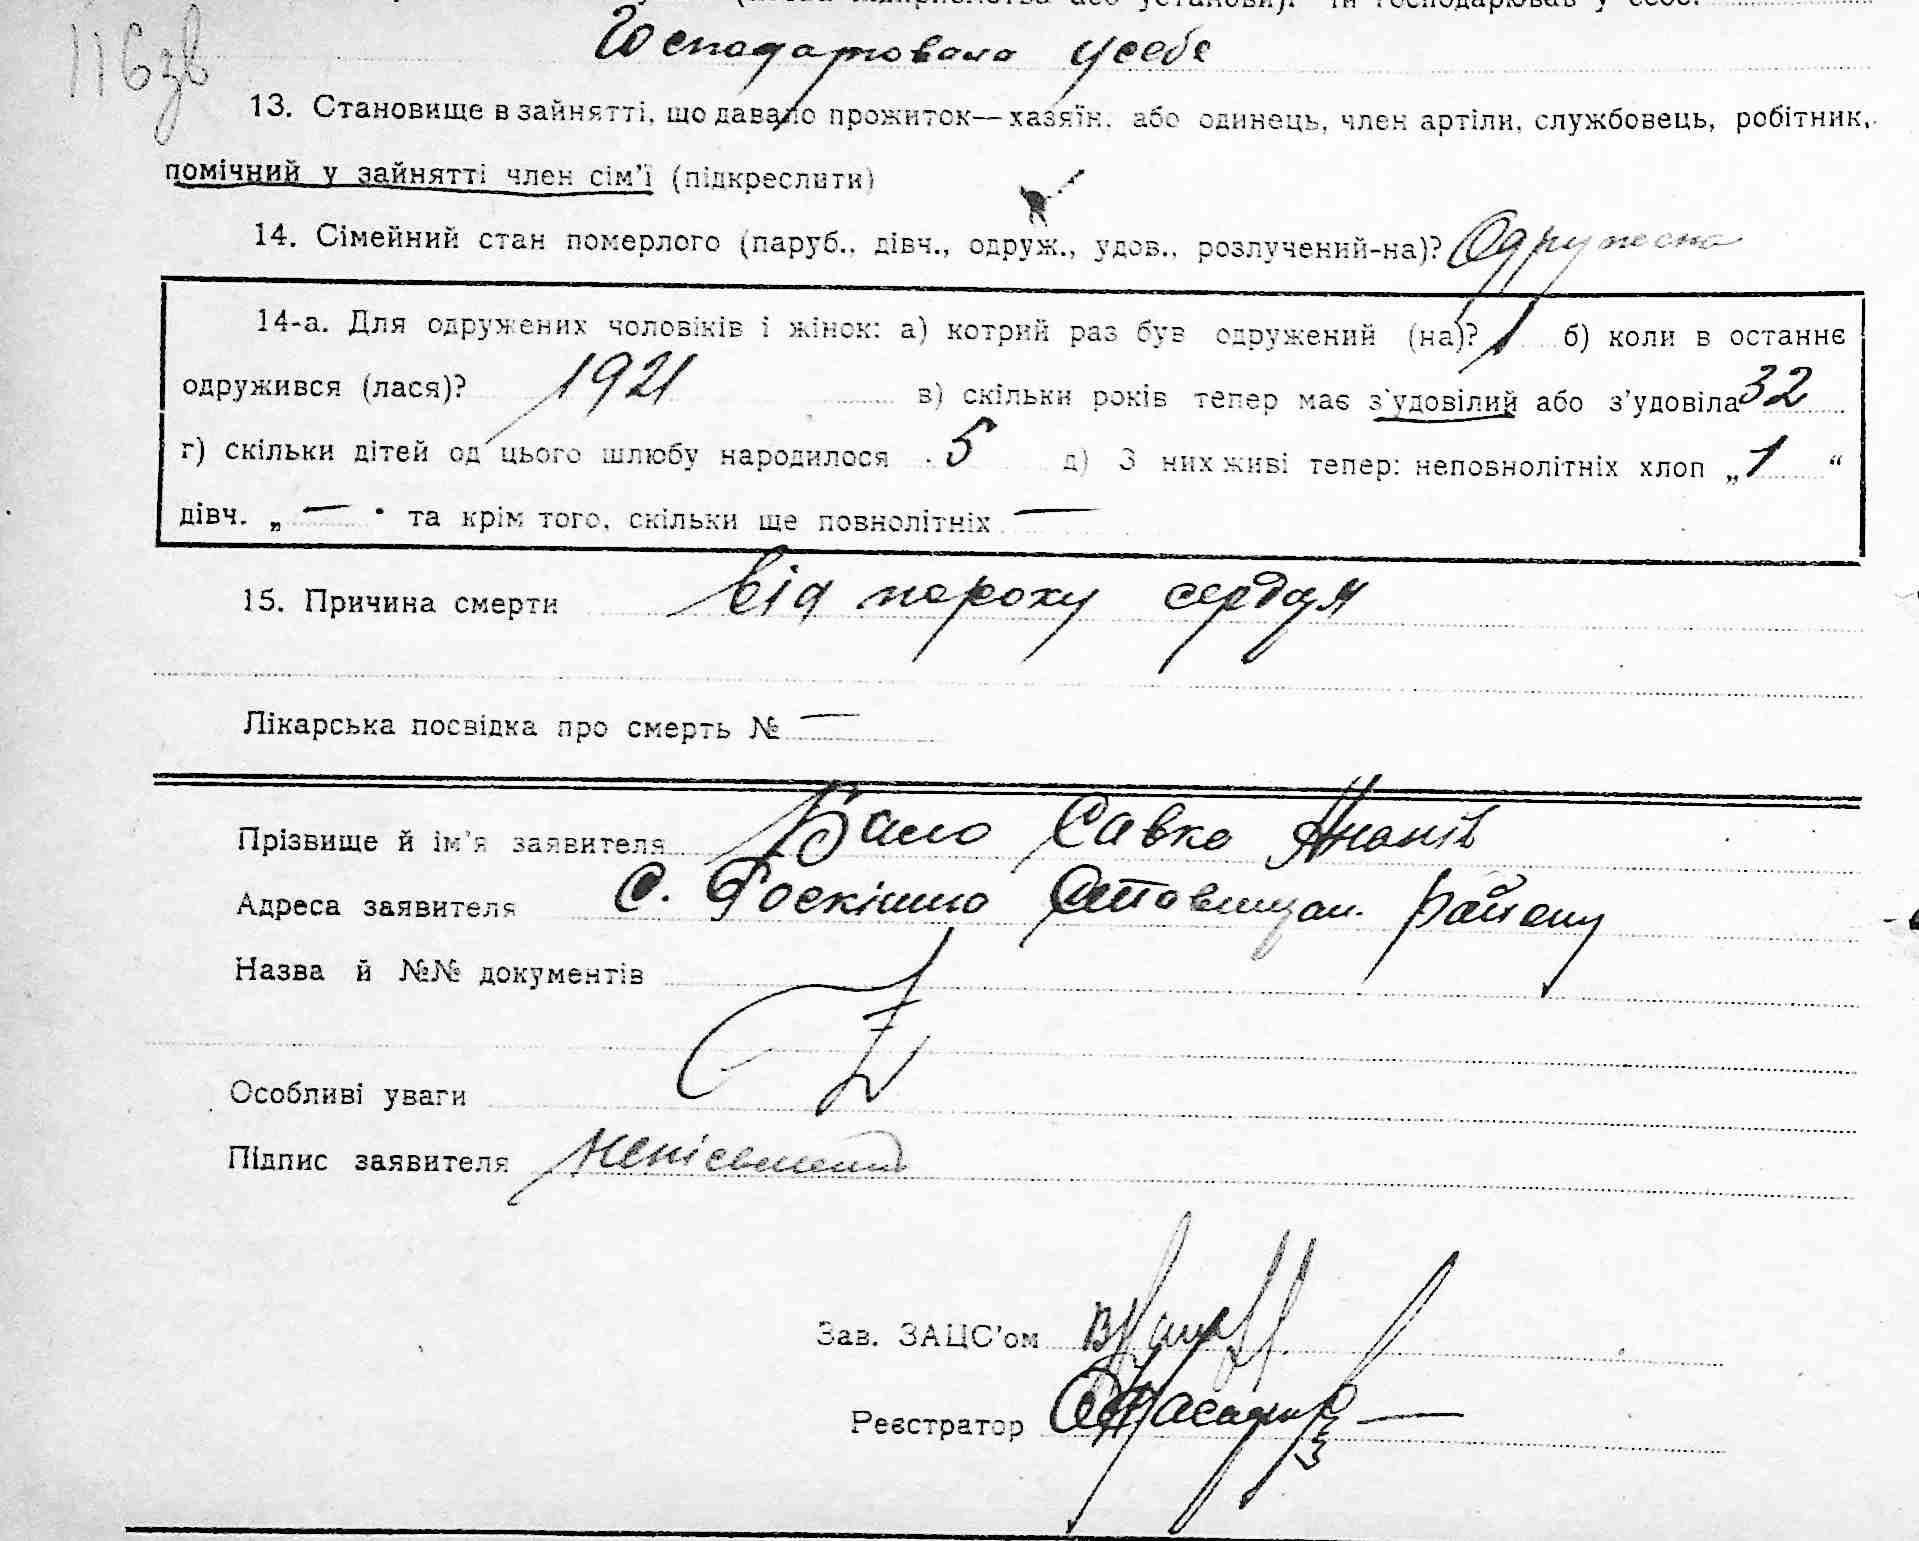 116зв
(назва підприємства або установи). Чи господарював у себе.
Господарювала у себе
13. Становище в зайнятті, що давало прожиток—хазяїн, або одинець, член артіли, службовець, робітник,
помічний у зайнятті член сім'ї (підкреслити)
14. Сімейний стан померлого (паруб., дівч., одруж., удов., розлучений-на)? Одружена
14-а. Для одружених чоловіків і жінок: а) котрий раз був одружений (на)? 1 б) коли в останнє
одружився (лася)? 1921 в) скільки років тепер має з'удовілий або з'удовіла 32
г) скільки дітей од цього шлюбу народилося 5 д) З них живі тепер: неповнолітніх хлоп „1“
дівч. „ — “ та крім того, скільки ще повнолітніх —
15. Причина смерти від пороху сердця
Лікарська посвідка про смерть № —
Прізвище й ім'я заявителя Савка
Адреса заявителя с. Розкішно Ставищан. району
Назва й №№ документів
Особливі уваги
Підпис заявителя неписьменний
Зав. ЗАЦС'ом
Реєстратор